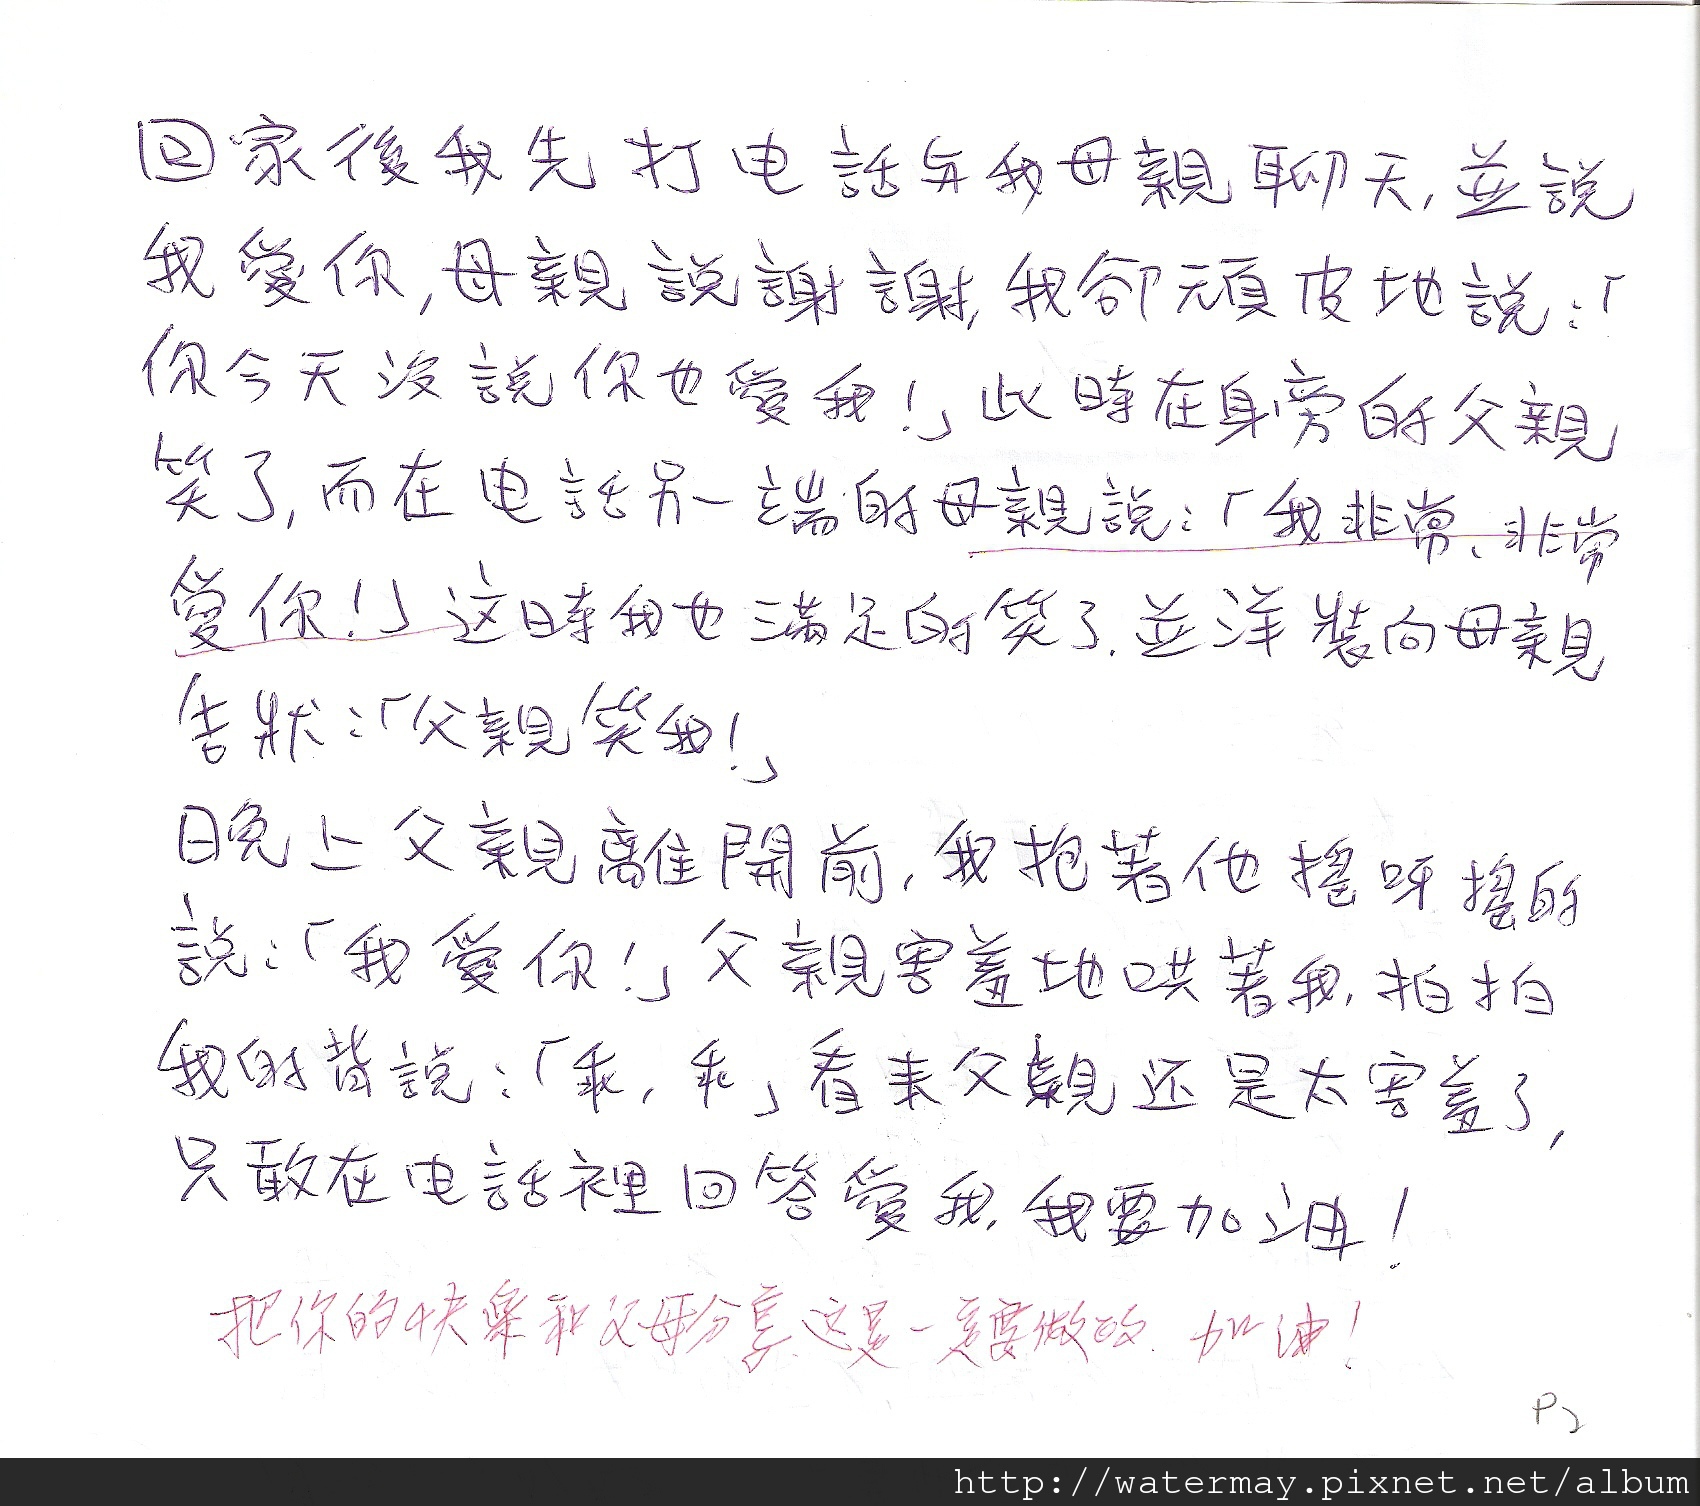 回家後我先打电話与我母親聊天,並說
我愛你,母親說謝謝,我卻頑皮地說:「
你今天沒說你也愛我!」此時在身旁的父親
笑了,而在电話另一端的母親說:「我非常、非常
愛你!」这時我也滿足的笑了.並洋裝向母親
告狀:「父親笑我!」
晚上父親離開前,我抱著他搖呀搖的
說:「我愛你!」父親害羞地哄著我,拍拍
我的背說:「乖,乖」看来父親还是太害羞了,
只敢在电話裡回答愛我,我要加油!
把你的快樂和父母分享,这是一定要做的.加油!
P2
http://watermay.pixnet.net/album